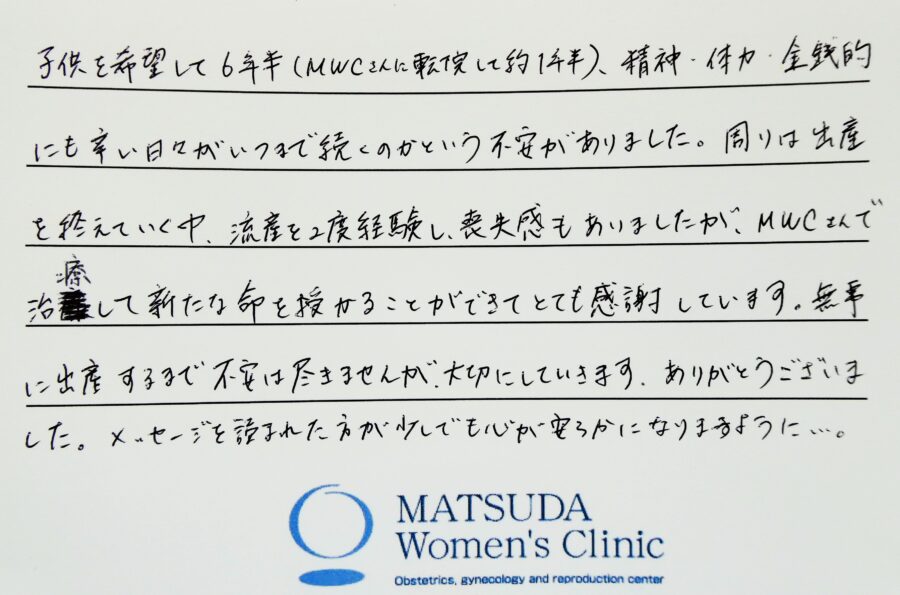 子供を希望して6年半(MWCさんに転院して約1年半)、精神・体力・金銭的
にも辛い日々がいつまで続くのかという不安がありました。周りは出産
を終えていく中、流産を2度経験し、喪失感もありましたが、MWCさんで
治療して新たな命を授かることができてとても感謝しています。無事
に出産するまで不安は尽きませんが、大切にしていきます。ありがとうございま
した。メッセージを読まれた方が少しでも心が安らかになりますように…。
MATSUDA
Women's Clinic
Obstetrics, gynecology and reproduction center